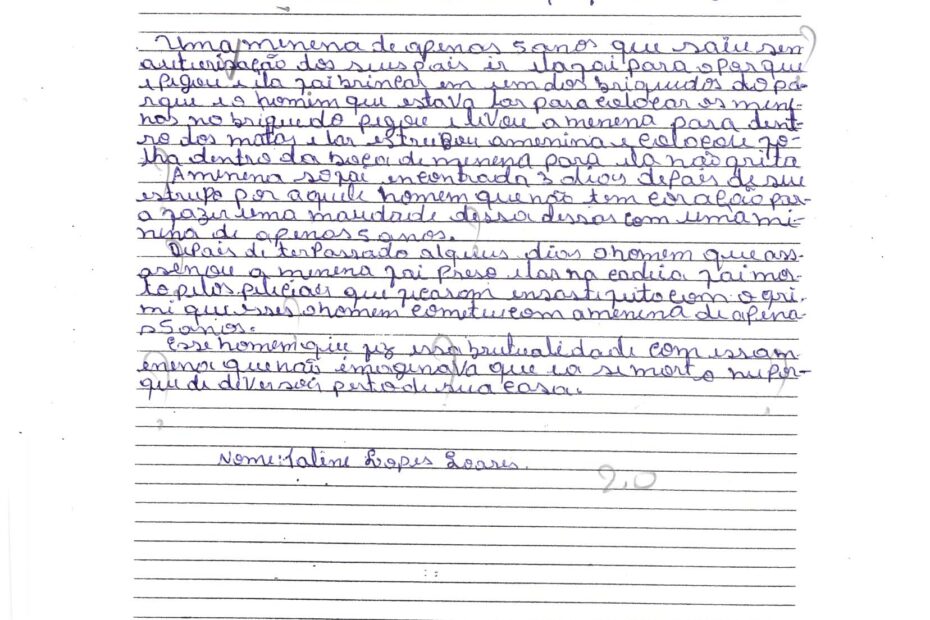 Uma minena de apenas 5 anos que saiu sen
autorização dos seus pais ir ela foi para o parque
e pegou e ela foi brincar em um dos briquedos do pa-
rque e o homim que estava lar para colocar os meni-
nos no briquedo pegou e livou a menena para dent-
ro dos matos e lar estrupou amenina e colocou fo-
lha dentro da boca de minena para ela não grita
A menena so foi encontrada 3 dios depois de seu
estrupo por aquele homem que não tem coração par-
a fazer uma maudade dessa dessas com uma mi-
nina de apenas 5 anos.
Depois de ter passado alguns dios o homem que ass-
asenou a minena foi preso e lar na cadeia foi mor-
to pelos policiais que ficarom insastifeito com o cri-
mi que esses o homem cometeu com amenina de apena-
s 5 anos.
Esse homem que fez essa brutualidade com essa m-
enena que não imargenava que ia se morto nu par-
que de diversoi perto de sua casa.
Nome: Taline Lopes Soares.
2,0